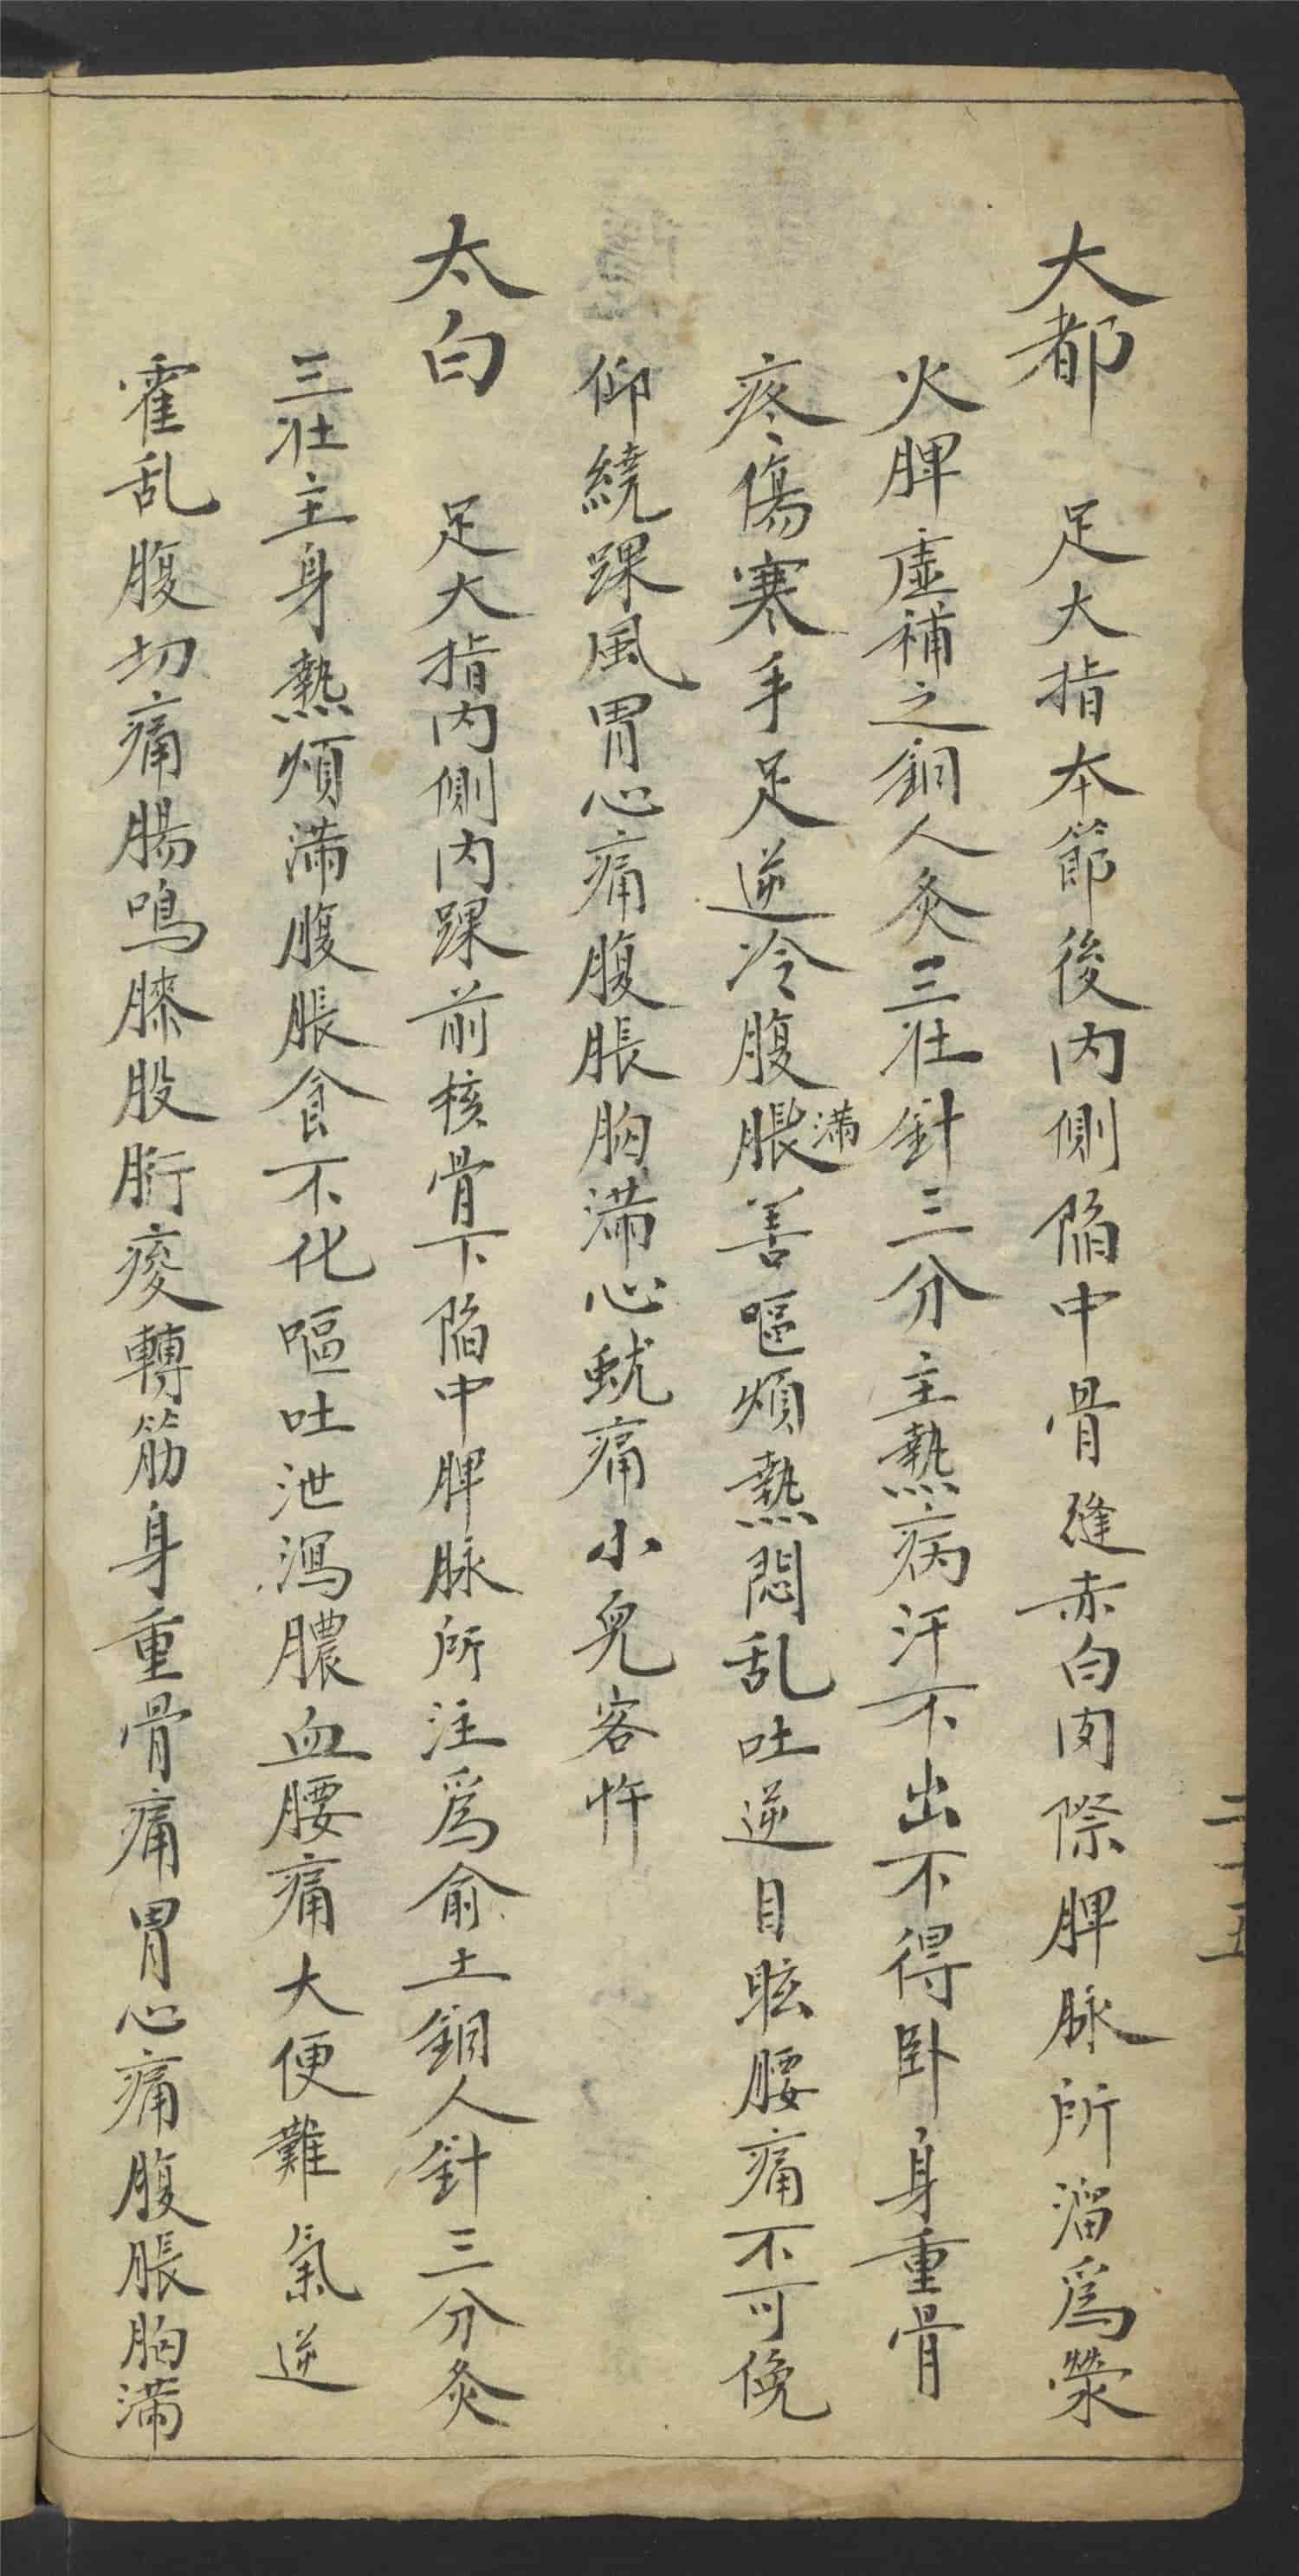 二十五
大都　足大指本節後内側陷中骨縫赤白肉際脾脉所溜爲滎
火脾虛補之銅人灸三壯針三分主熱病汗不出不得卧身重骨
疼傷寒手足逆冷腹脹滿善嘔煩熱悶乱吐逆目眩腰痛不可俛
仰繞踝風胃心痛腹脹胸滿心蚘痛小兒客忤
太白　足大指内側内踝前核骨下陷中脾脉所注爲俞土銅人針三分灸
三壯主身熱煩滿腹脹食不化嘔吐泄瀉膿血腰痛大便難氣逆
霍乱腹切痛腸鳴膝股胻痠轉筋身重骨痛胃心痛腹脹胸滿